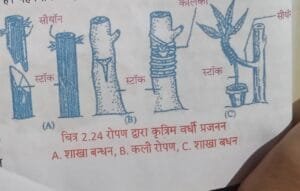 सीयॉन
कलिका
सीयॉन
स्टॉक
स्टॉक
स्टॉक
(A)
(B)
(C)
चित्र 2.24 रोपण द्वारा कृत्रिम वर्धी प्रजनन
A. शाखा बन्धन, B. कली रोपण, C. शाखा बधन